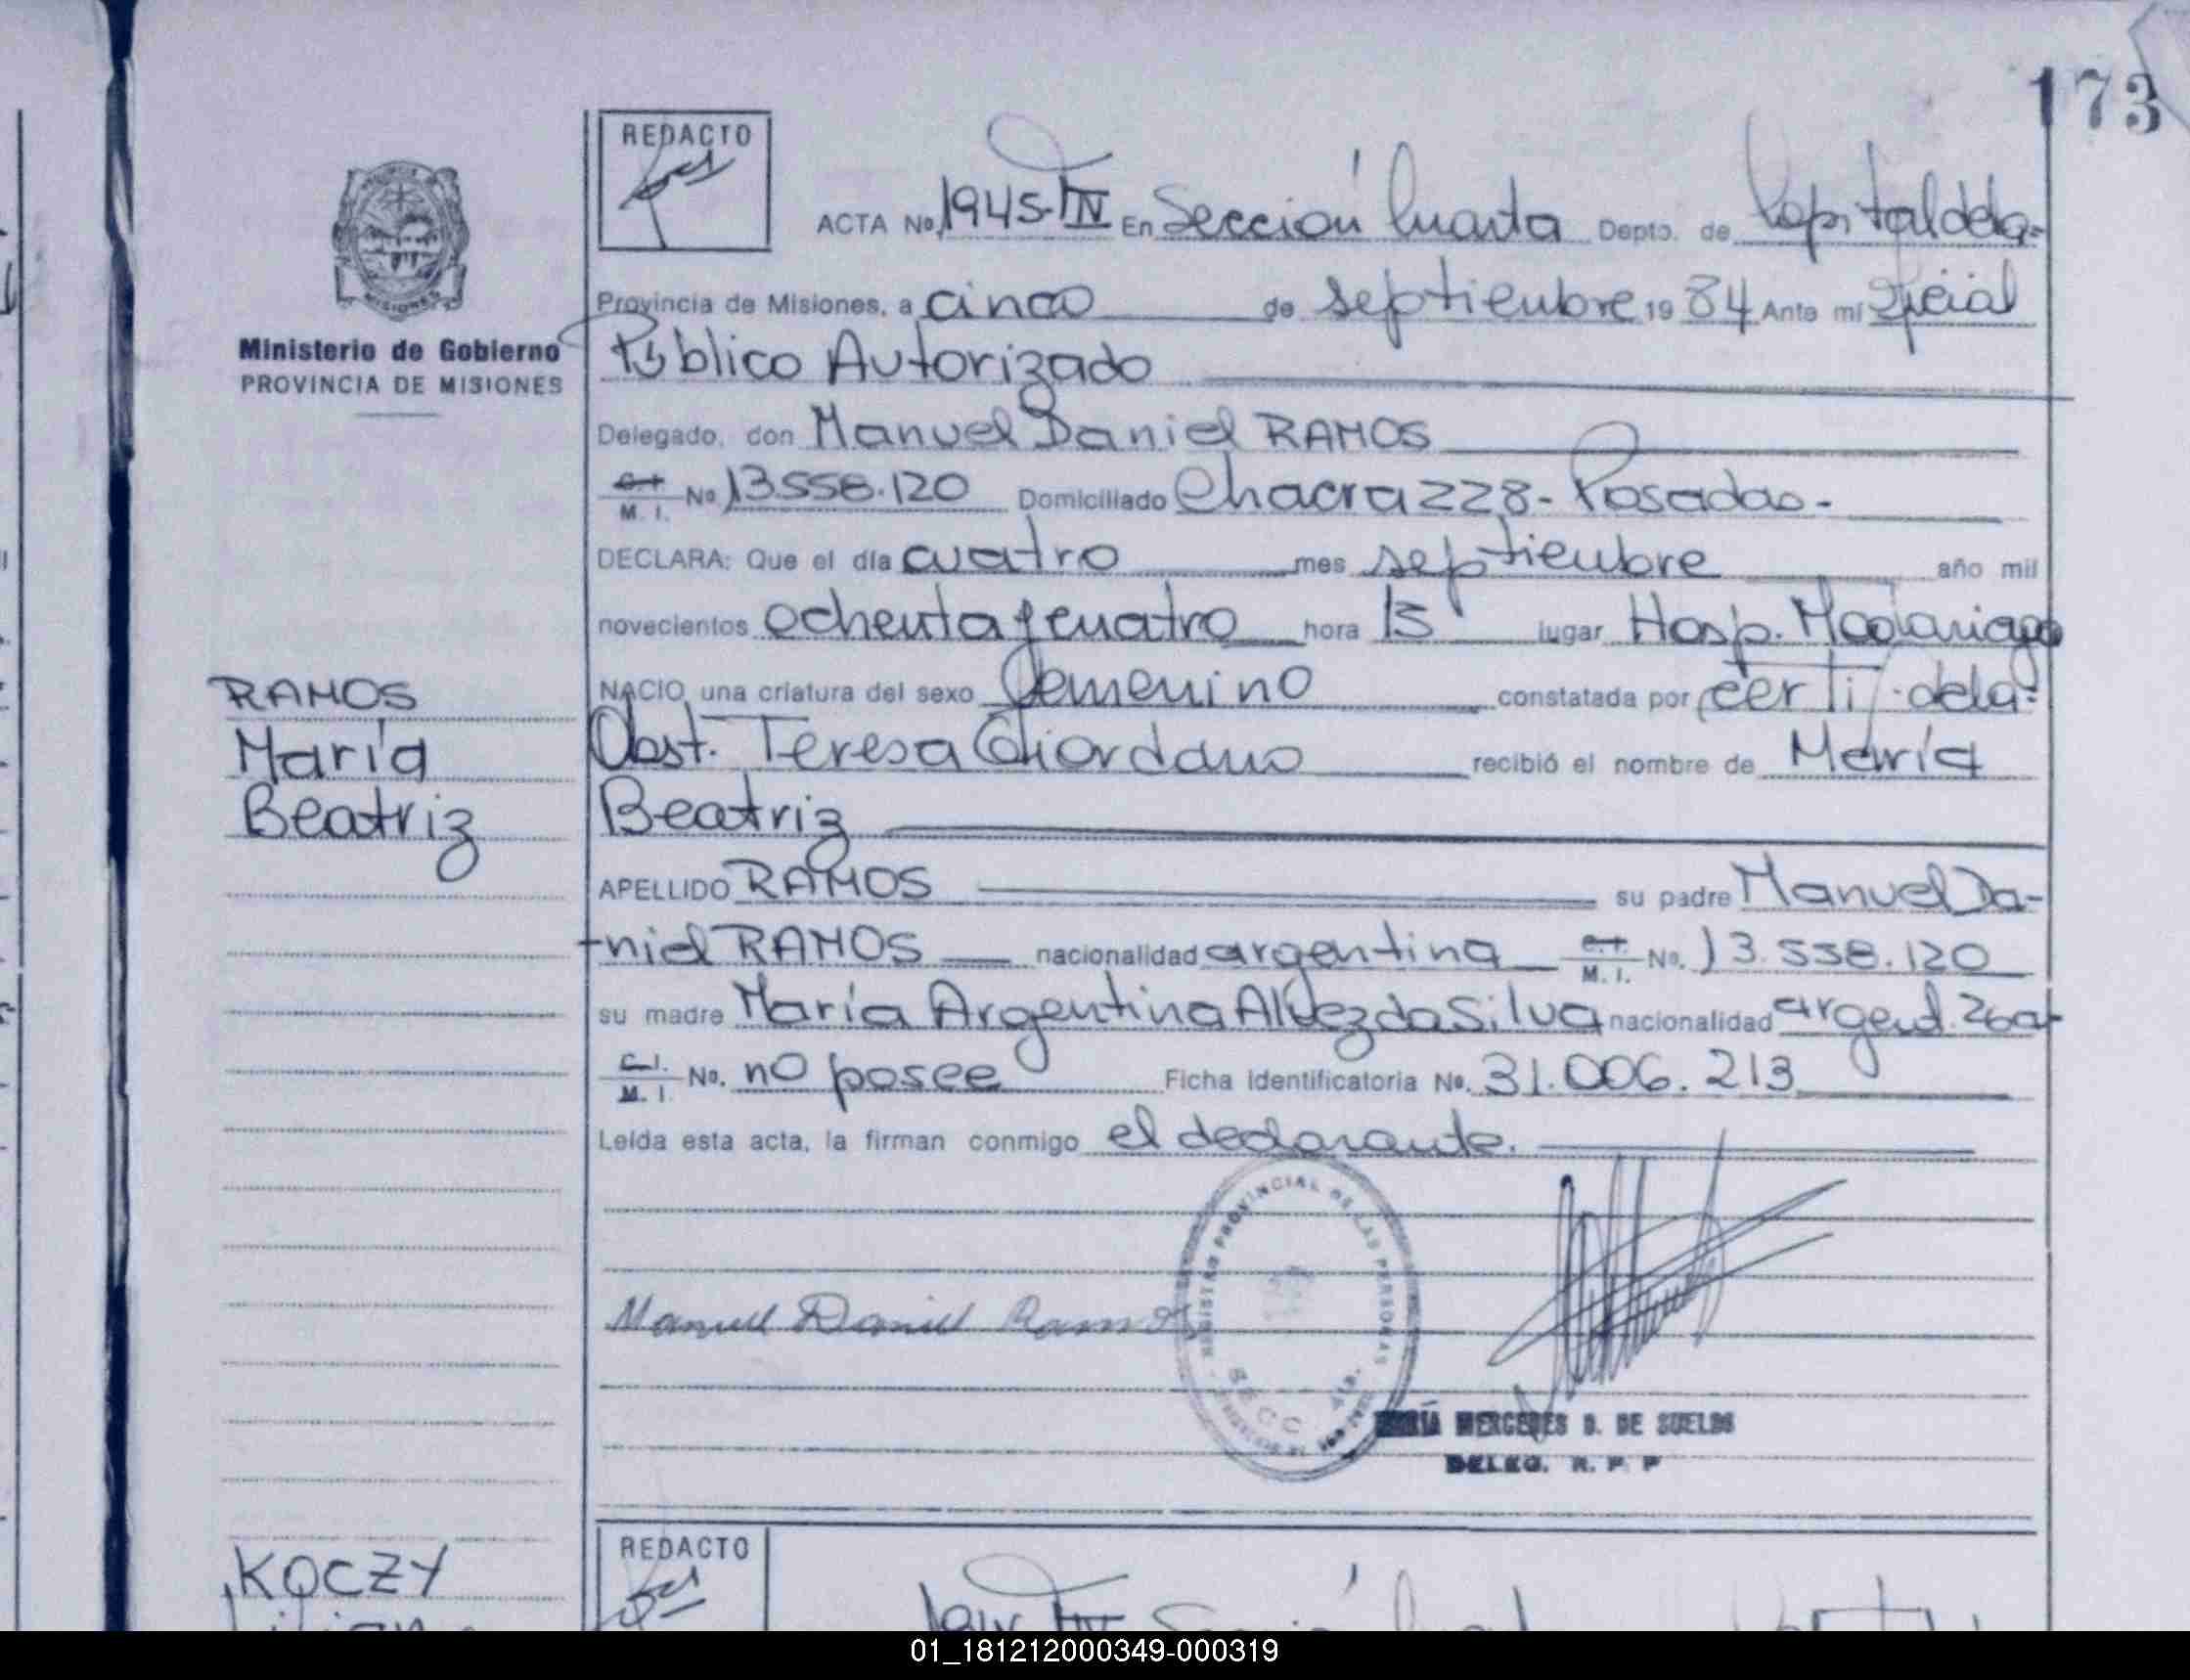 173
REDACTO
ACTA No 1945-IV En Sección Cuarta Depto. de Capital de la-
Provincia de Misiones, a cinco de septiembre 1984 Ante mí Oficial
Ministerio de Gobierno
PROVINCIA DE MISIONES
Público Autorizado
Delegado, don Manuel Daniel RAMOS
C.I. M. I. No 13.558.120 Domiciliado Chacra 228- Posadas-
DECLARA: Que el día cuatro mes septiembre año mil
novecientos ochenta y cuatro hora 13 lugar Hosp. Madariaga
RAMOS
María
Beatriz
NACIO una criatura del sexo femenino constatada por certi. dela-
Obst. Teresa Giordano recibió el nombre de María
Beatriz
APELLIDO RAMOS su padre Manuel Da-
niel RAMOS nacionalidad argentina C.I. M. I. No. 13.558.120
su madre María Argentina Alvez da Silva nacionalidad argent. 26a-
C.I. M. I. No. no posee Ficha identificatoria No. 31.006.213
Leída esta acta, la firman conmigo el declarante.
Manuel Daniel Ramos
REGISTRO PROVINCIAL DE LAS PERSONAS
SECC. 4ta.
MARÍA MERCEDES D. DE SUELDO
DELEG. R. P. P
KOCZY
REDACTO
01_181212000349-000319